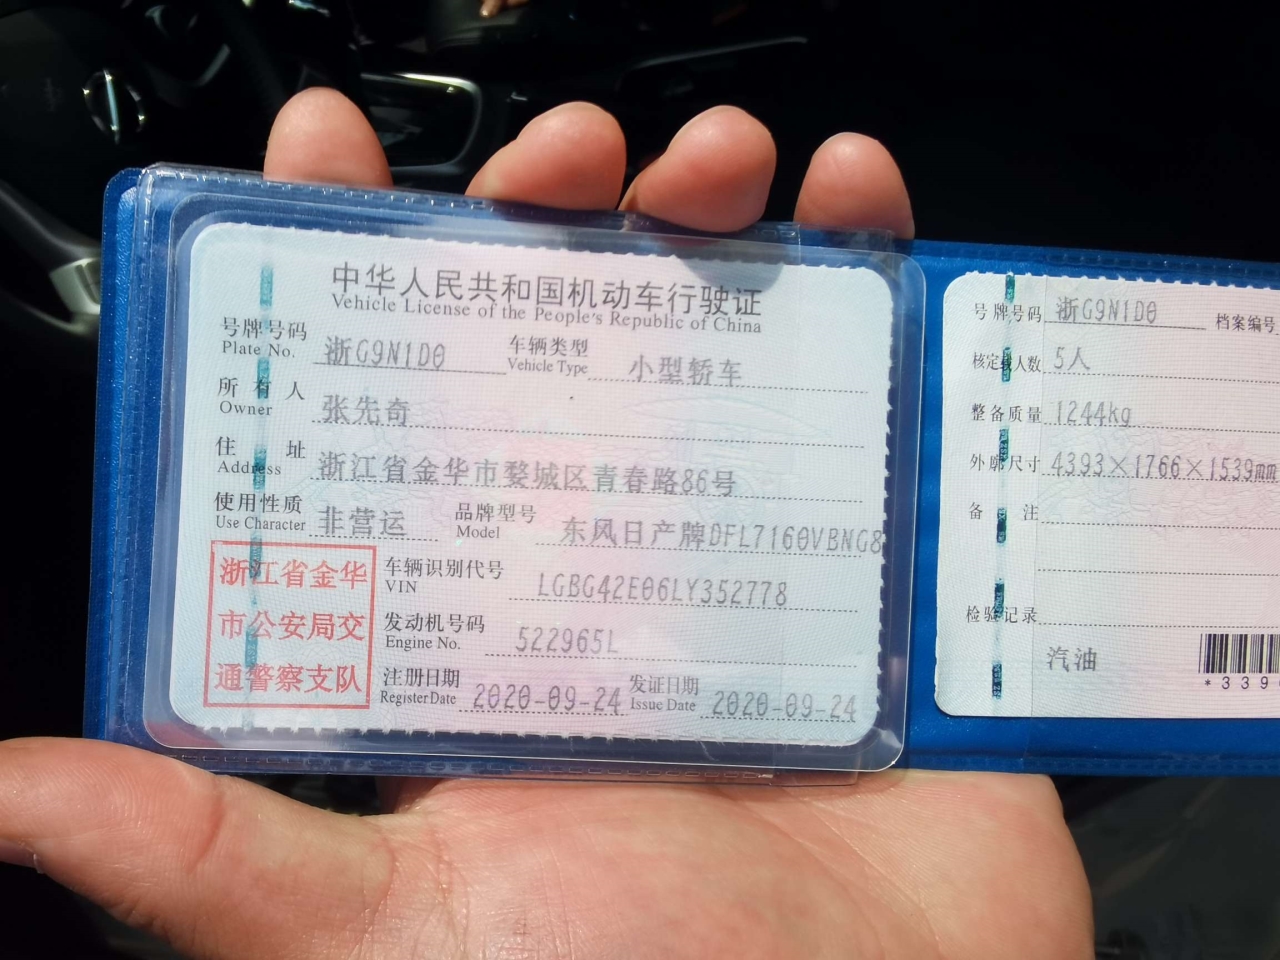 中华人民共和国机动车行驶证
Vehicle License of the People's Republic of China
号牌号码 浙G9N1D0 车辆类型 小型轿车
Plate No. Vehicle Type
所有人 张先奇
Owner
住址 浙江省金华市婺城区青春路86号
Address
使用性质 非营运 品牌型号 东风日产牌DFL7160VBNG8
Use Character Model
浙江省金华
市公安局交
通警察支队
车辆识别代号 LGBG42E06LY352778
VIN
发动机号码 522965L
Engine No.
注册日期 2020-09-24 发证日期 2020-09-24
Register Date Issue Date
号牌号码 浙G9N1D0 档案编号
核定载人数 5人
整备质量 1244kg
外廓尺寸 4393×1766×1539mm
备注
检验记录
汽油
*339